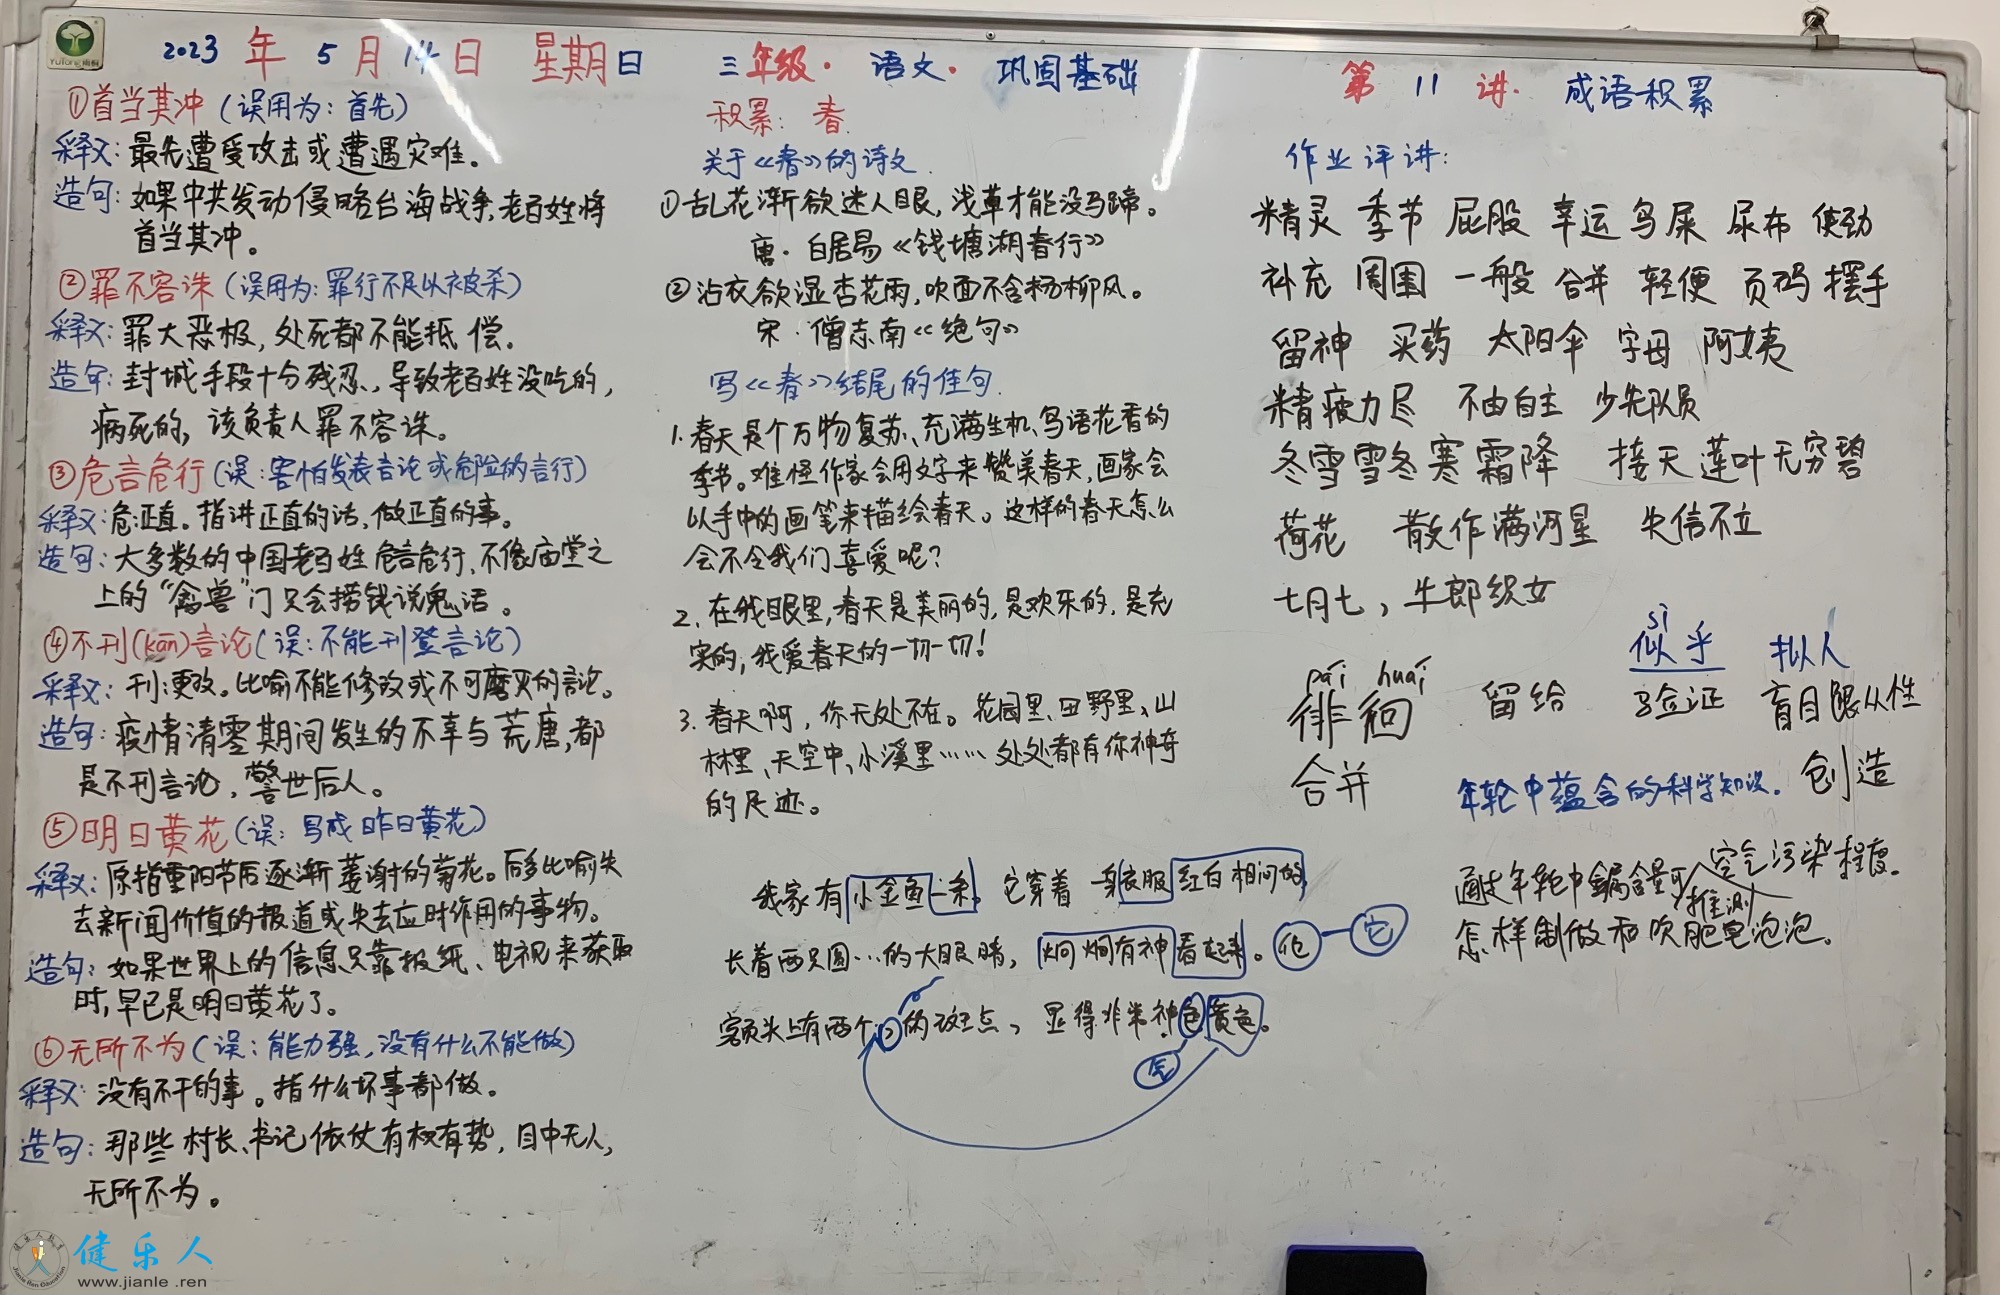 2023 年 5 月 14 日 星期日 三年级· 语文· 巩固基础 第 11 讲· 成语积累
①首当其冲（误用为：首先）
释义：最先遭受攻击或遭遇灾难。
造句：如果中共发动侵略台海战争,老百姓将
首当其冲。
②罪不容诛（误用为：罪行不足以被杀）
释义：罪大恶极，处死都不能抵偿。
造句：封城手段十分残忍，导致老百姓没吃的，
病死的，该负责人罪不容诛。
③危言危行（误：害怕发表言论或危险的言行）
释义：危:正直。指讲正直的话，做正直的事。
造句：大多数的中国老百姓危言危行，不像庙堂之
上的“禽兽”们只会捞钱说鬼话。
④不刊(kān)言论（误：不能刊登言论）
释义：刊：更改。比喻不能修改或不可磨灭的言论。
造句：疫情清零期间发生的不幸与荒唐，都
是不刊言论，警世后人。
⑤明日黄花（误：写成昨日黄花）
释义：原指重阳节后逐渐萎谢的菊花。后多比喻失
去新闻价值的报道或失去应时作用的事物。
造句：如果世界上的信息只靠报纸、电视来获取
时，早已是明日黄花了。
⑥无所不为（误：能力强，没有什么不能做）
释义：没有不干的事。指什么坏事都做。
造句：那些村长、书记依仗有权有势，目中无人，
无所不为。
积累：春
关于《春》的诗文
①乱花渐欲迷人眼，浅草才能没马蹄。
唐·白居易《钱塘湖春行》
②沾衣欲湿杏花雨，吹面不含杨柳风。
宋·僧志南《绝句》
写《春》结尾的佳句
1.春天是个万物复苏、充满生机、鸟语花香的
季节。难怪作家会用文字来赞美春天，画家会
以手中的画笔来描绘春天。这样的春天怎么
会不令我们喜爱呢？
2.在我眼里，春天是美丽的，是欢乐的，是充
实的，我爱春天的一切一切！
3.春天啊，你无处不在。花园里、田野里、山
林里、天空中、小溪里……处处都有你神奇
的足迹。
我家有小金鱼一条。它穿着一身衣服红白相间的，
长着两只圆…的大眼睛，炯炯有神看起来。他—它
额头上有两个的斑点，显得非常神色黄色。
气
作业评讲：
精灵 季节 屁股 幸运 鸟屎 尿布 使劲
补充 周围 一般 合并 轻便 页码 摆手
留神 买药 太阳伞 字母 阿姨
精疲力尽 不由自主 少先队员
冬雪雪冬寒霜降 接天莲叶无穷碧
荷花 散作满河星 失信不立
七月七，牛郎织女
sì
似乎 拟人
pái huái
徘徊 留给 验证 盲目跟从性
合并 年轮中蕴含的科学知识. 创造
通过年轮中镉含量可推测空气污染程度。
怎样制做和吹肥皂泡泡。
Yutong
健乐人
www.jianle.ren